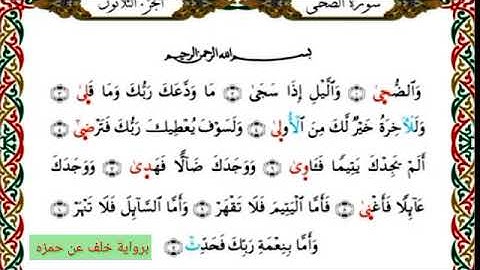 سورة الضحى الجزء الثلاثون
بسم الله الرحمن الرحيم
وَٱلضُّحىٰ ١ وَٱلَّيْلِ إِذَا سَجَىٰ ٢ مَا وَدَّعَكَ رَبُّكَ وَمَا قَلىٰ ٣
وَلَلْأٓخِرَةُ خَيْرٌ لَّكَ مِنَ ٱلْأُولىٰ ٤ وَلَسَوْفَ يُعْطِيكَ رَبُّكَ فَتَرْضىٰ ٥
أَلَمْ يَجِدْكَ يَتِيمًا فَـَٔاوىٰ ٦ وَوَجَدَكَ ضَآلًّا فَهَدىٰ ٧ وَوَجَدَكَ
عَآئِلًا فَأَغْنىٰ ٨ فَأَمَّا ٱلْيَتِيمَ فَلَا تَقْهَرْ ٩ وَأَمَّا ٱلسَّآئِلَ فَلَا تَنْهَرْ ١٠
وَأَمَّا بِنِعْمَةِ رَبِّكَ فَحَدِّثْ ١١
برواية خلف عن حمزه